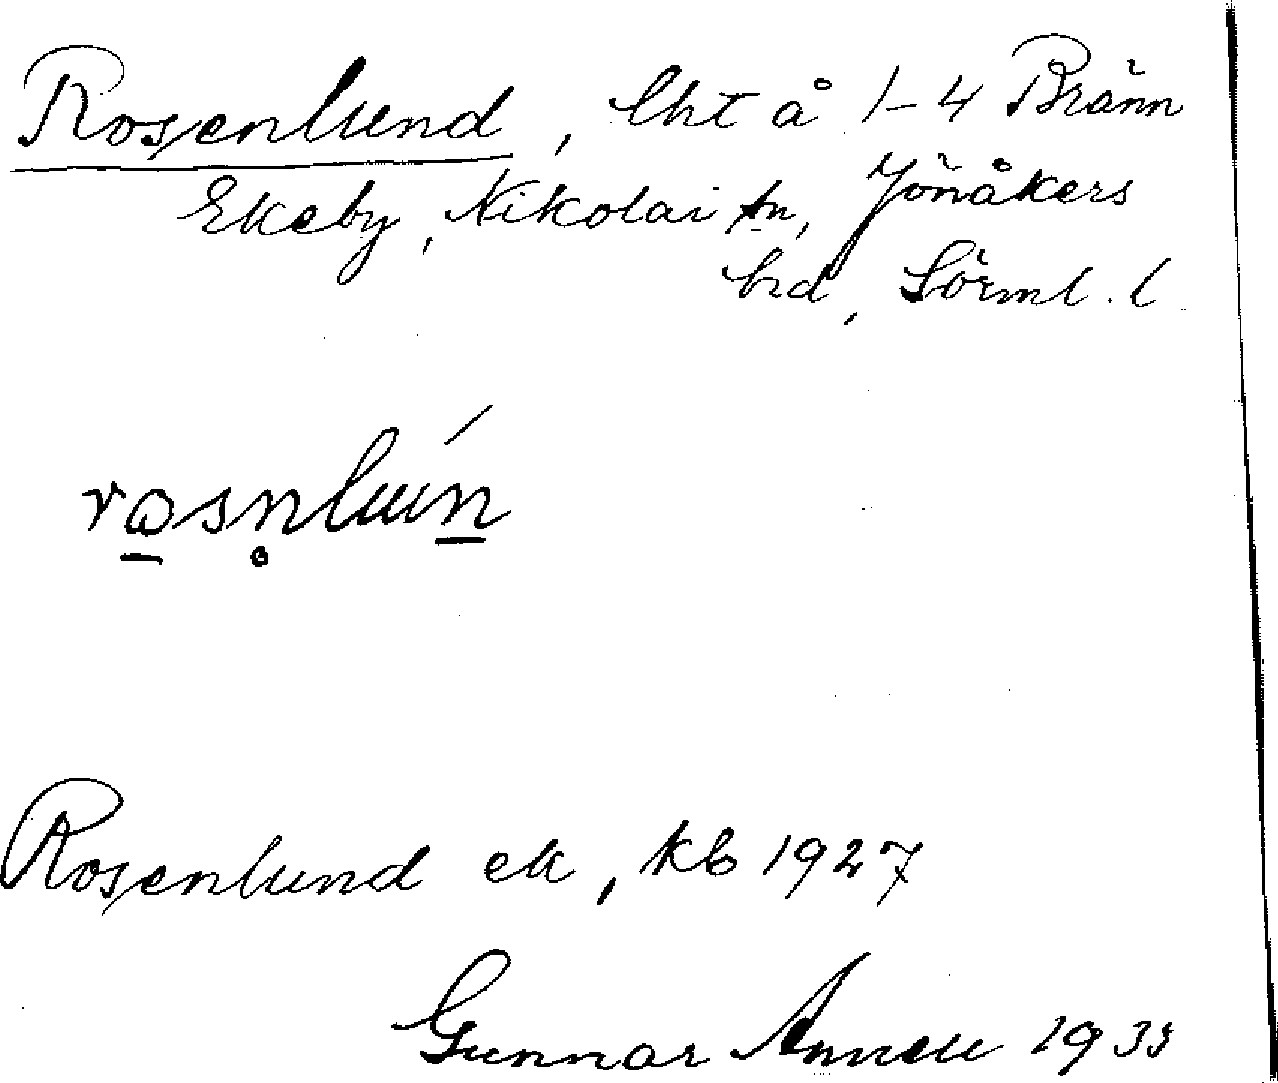 Rosenlund, lht å 1-4 Bränn
Ekeby, Nikolai sn, Jönåkers
hd, Sörml. l
Rosenlund ek, kb 1927
Gunnar 19